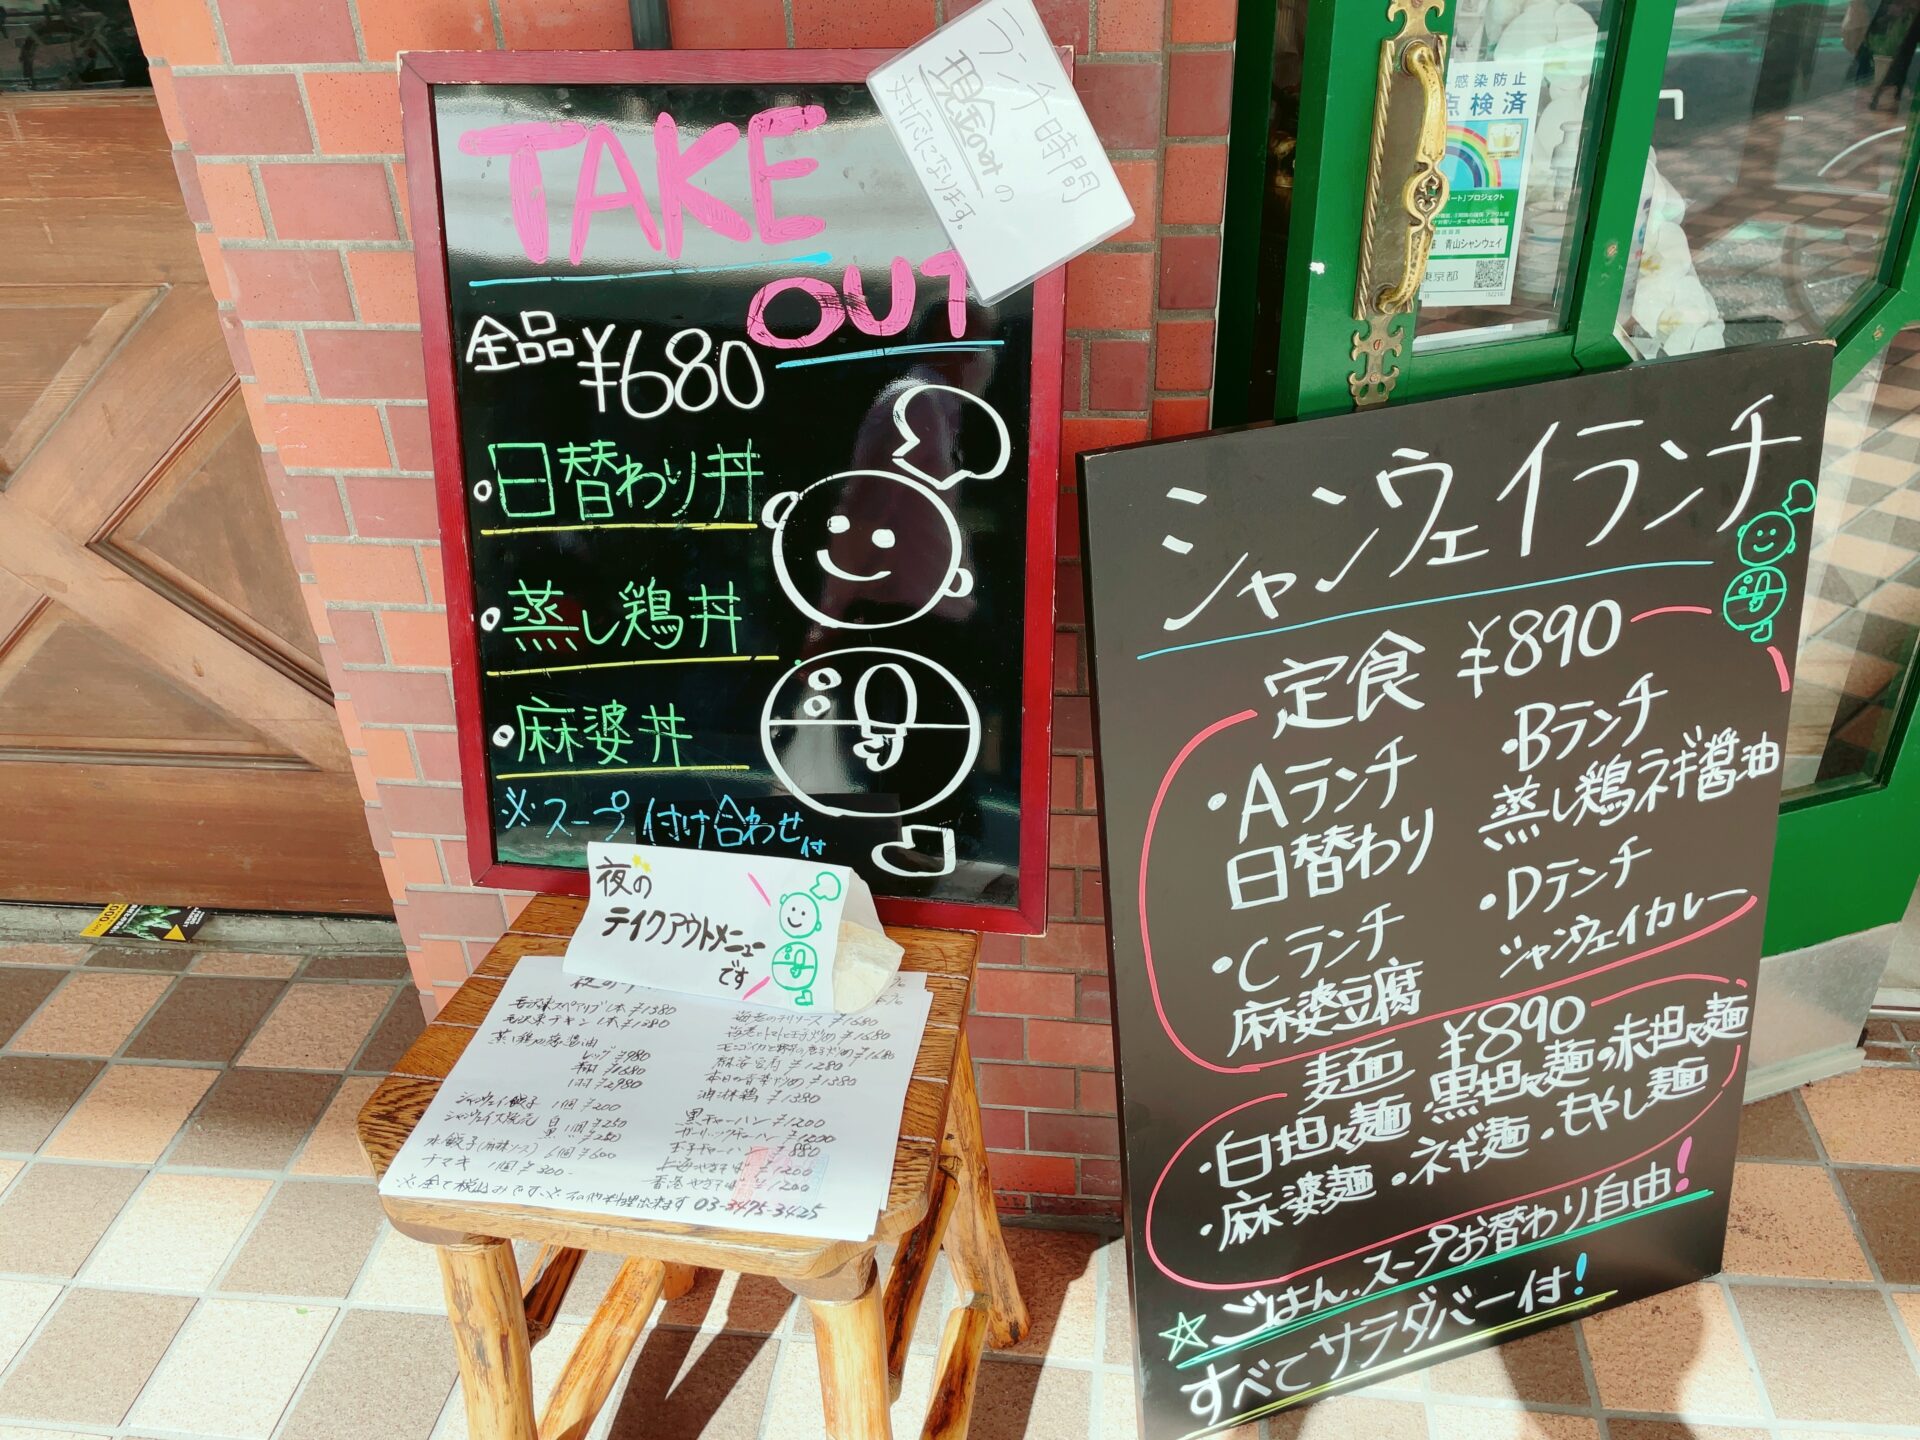 TAKE
OUT
全品 ¥680
日替わり丼
蒸し鶏丼
麻婆丼
※スープ 付け合わせ付
ランチ時間
現金のみの
対応になります。
夜の
テイクアウトメニュー
です
毛沢東スペアリブ1本 ¥1380
毛沢東チキン1本 ¥1380
レッグ ¥980
半羽 ¥1680
1羽 ¥2980
シャンウェイ餃子 1個 ¥200
シャンウェイ焼売 白 1個 ¥250
黒 〃 ¥250
水餃子(胡麻ソース) 6個 ¥600
チマキ 1個 ¥300
海老のチリソース ¥1680
海老とトマトと玉子炒め ¥1680
麻婆豆腐 ¥1280
本日の青菜炒め ¥1380
油淋鶏 ¥1380
黒チャーハン ¥1200
ガーリックチャーハン ¥1200
玉子チャーハン ¥880
上海やきそば ¥1200
香港やきそば ¥1200
※全て税込みです ※その他料理出来ます 03-3475-3425
感染防止
点検済
青山シャンウェイ
東京都
シャンウェイランチ
定食 ¥890
・Aランチ
日替わり
・Bランチ
蒸し鶏ネギ醤油
・Cランチ
麻婆豆腐
・Dランチ
シャンウェイカレー
麺 ¥890
・白坦々麺・黒坦々麺・赤坦々麺
・麻婆麺・ネギ麺・もやし麺
☆ごはん.スープお替わり自由!
すべてサラダバー付!